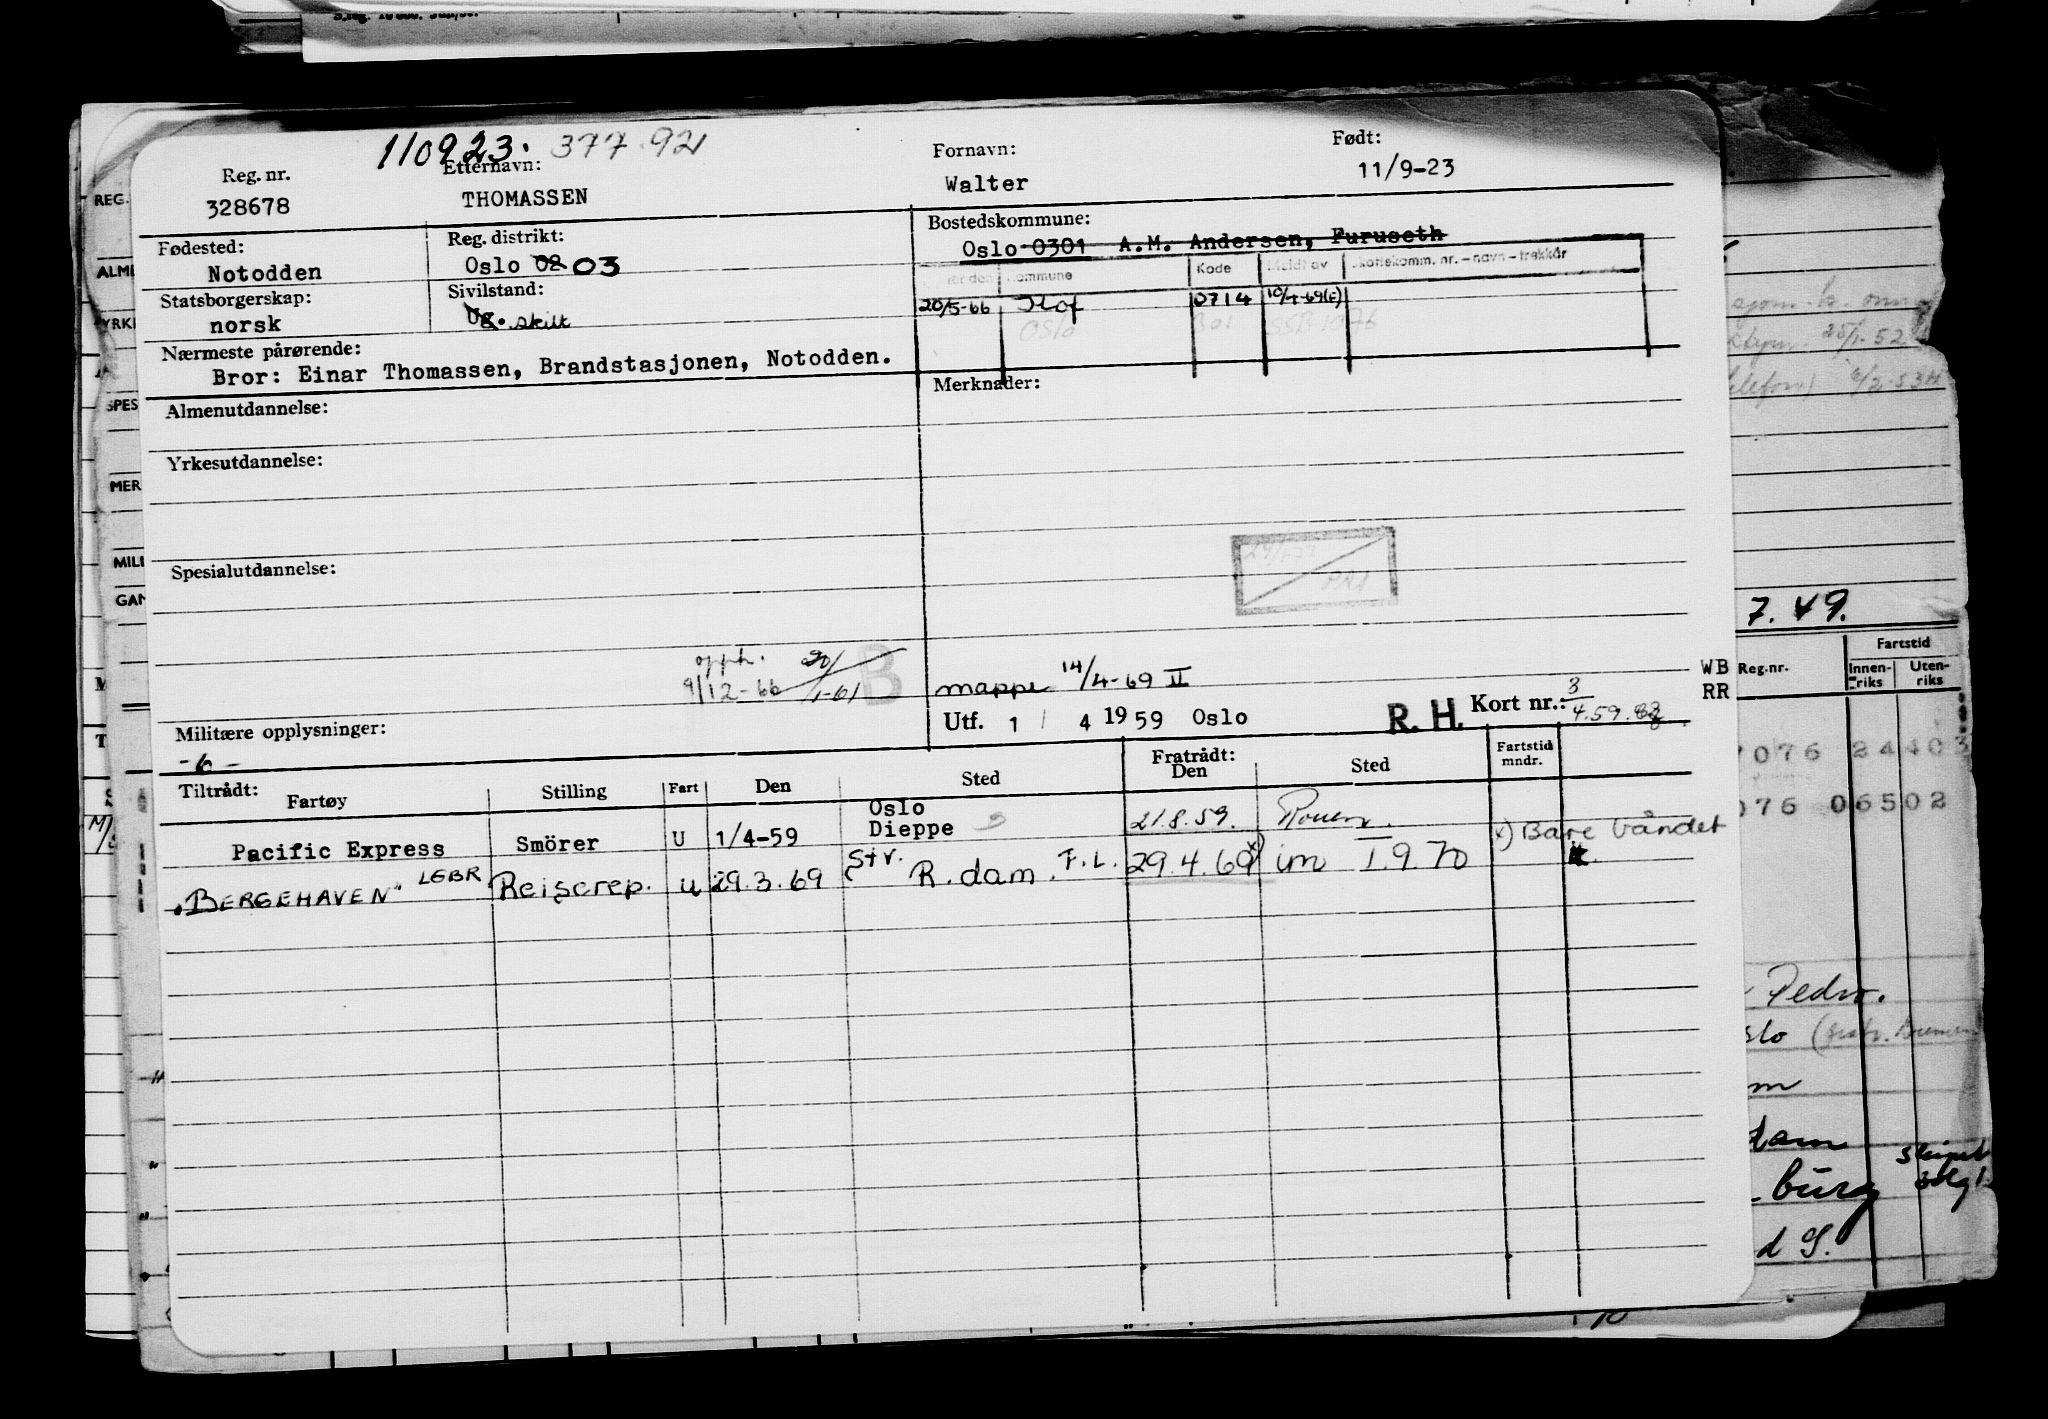 110923. 377 92
Reg. nr. Etternavn: Fornavn: Født:
328678 THOMASSEN Walter 11/9-23
Fødested: Reg. distrikt: Bostedskommune:
Notodden Oslo 02 03 Oslo 0301 A.M. Andersen, Furuseth
Kommune Kode Meldt av Skattekomm. nr. - navn - trekkår
Statsborgerskap: Sivilstand: 20/5-66 Hof 0714 10/4-69(E)
norsk Ug. skilt Oslo
Nærmeste pårørende:
Bror: Einar Thomassen, Brandstasjonen, Notodden.
Merknader:
Almenutdannelse:
Yrkesutdannelse:
Spesialutdannelse:
opph. 20/1-61 B
9/12-66
mappe 14/4-69 II
Utf. 1 / 4 1959 Oslo R. H. Kort nr.: 3
4.59.
Militære opplysninger:
-6-
Tiltrådt: Fartøy Stilling Fart Den Sted Fratrådt: Den Sted Fartstid mndr.
Oslo
Pacific Express Smörer U 1/4-59 Dieppe 21.8.59. Rouen.
"BERGEHAVEN" LGBR Reiserep. u 29.3.69 Str. R.dam. F.L. 29.4.69 x) im 1.9.70 x) Bare båndet
REG.
ALME
YRKE
SPES
MER
MILI
GAN
25/1-52
7.49.
WB
RR
Reg.nr. Fartstid
Innenriks Utenriks
076 24403
076 06502
Pedro.
slo
m
dam
burg
d S.